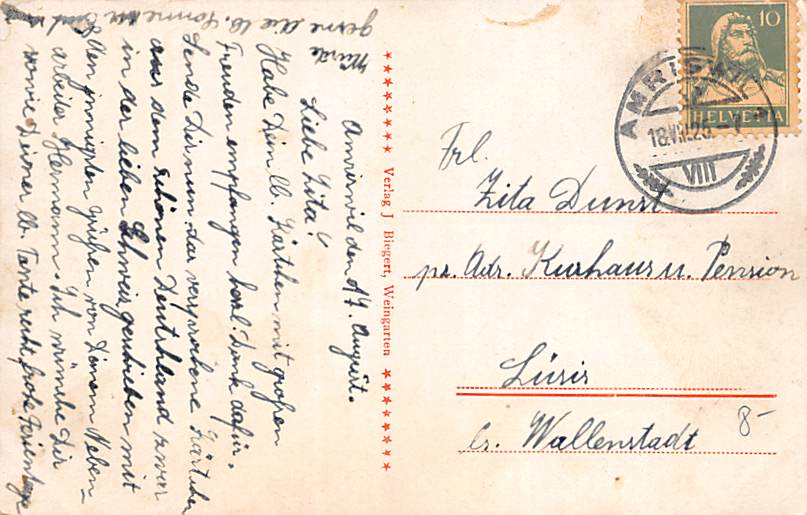 Amriswil den 17. August.
Liebe Zita!
Habe Dein lb. Kärtchen mit großen
Freuden empfangen herzl. Dank dafür.
Sende Dir nun das versprochene Kärtchen
aus dem schönen Deutschland zwar
in der lieben Schweiz geschrieben mit
den innigsten Grüßen von Deinem Neben-
arbeiter Hermann. Ich wünsche Dir
sowie Deiner lb. Tante recht frohe Ferientage
Würde
gerne die lb.
Verlag J Biegert, Weingarten
10
HELVETIA
AMRISWIL
18.VIII.25
VIII
Frl.
Zita Dunst
pr. Adr. Kurhaus u. Pension
Lüsis
b. Wallenstadt
8-